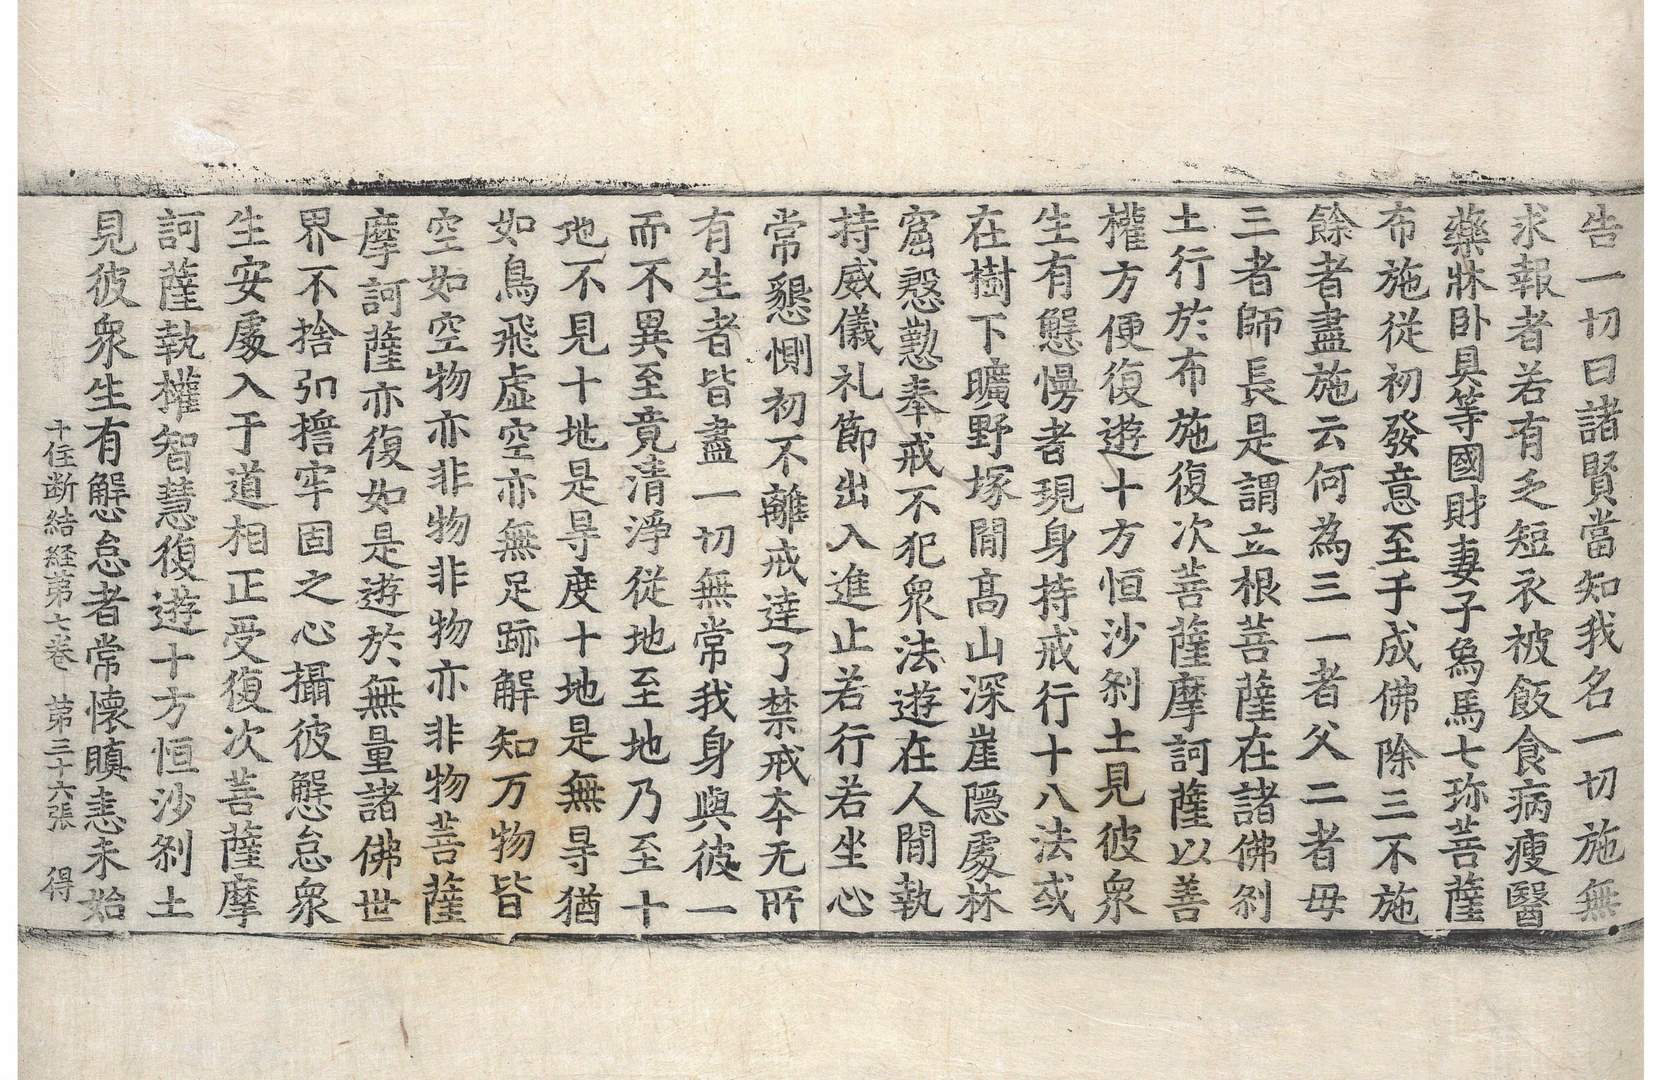 告一切曰諸賢當知我名一切施無
求報者若有乏短衣被飯食病瘦醫
藥牀卧具等國財妻子象馬七珎菩薩
布施從初發意至于成佛除三不施
餘者盡施云何為三一者父二者母
三者師長是謂立根菩薩在諸佛刹
土行於布施復次菩薩摩訶薩以善
權方便復遊十方恒沙刹土見彼衆
生有懈慢者現身持戒行十八法或
在樹下曠野塚間高山深崖隱處林
窟慇懃奉戒不犯衆法遊在人間執
持威儀礼節出入進止若行若坐心
常懇惻初不離戒達了禁戒本无所
有生者皆盡一切無常我身與彼一
而不異至竟清淨從地至地乃至十
地不見十地是㝵度十地是無㝵猶
如鳥飛虛空亦無足跡解知万物皆
空如空物亦非物非物亦非物菩薩
摩訶薩亦復如是遊於無量諸佛世
界不捨弘擔牢固之心攝彼懈怠衆
生安處入于道相正受復次菩薩摩
訶薩執權智慧復遊十方恒沙刹土
見彼衆生有懈怠者常懷瞋恚未始
十住断結経第七卷 第三十六張 得